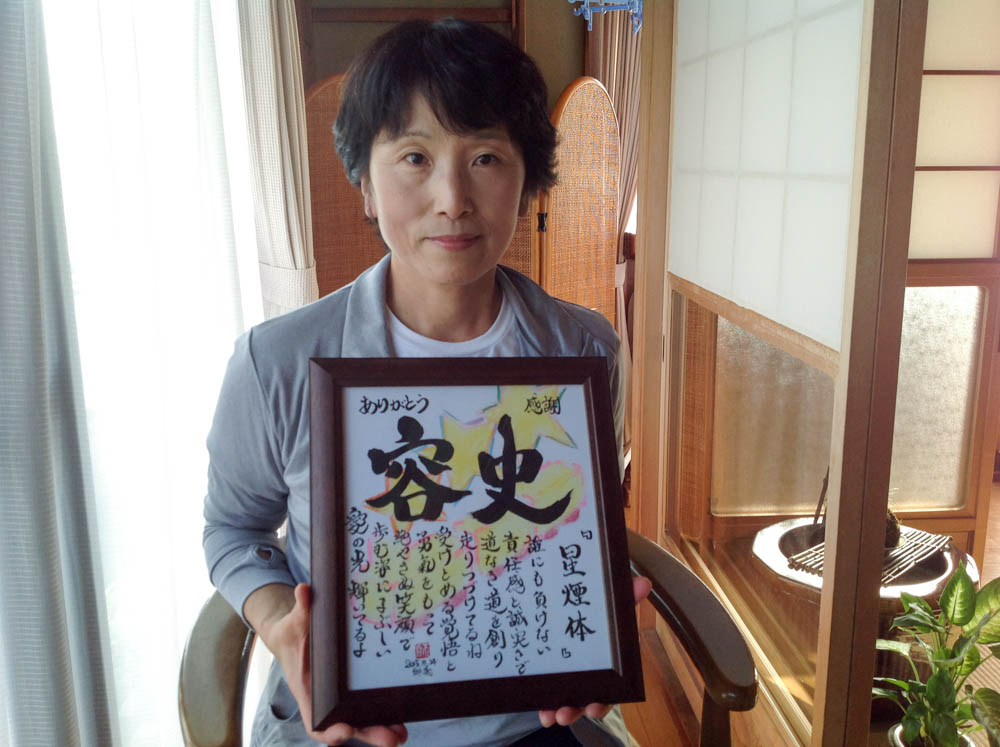 ありがとう
感謝
容史
『星煙体』
誰にも負けない
責任感と誠実さで
道なき道を創り
走りつづけてるね
受けとめる覚悟と
勇気をもって
絶やさぬ笑顔で
歩む姿にまぶしい
愛の光 輝いてるよ